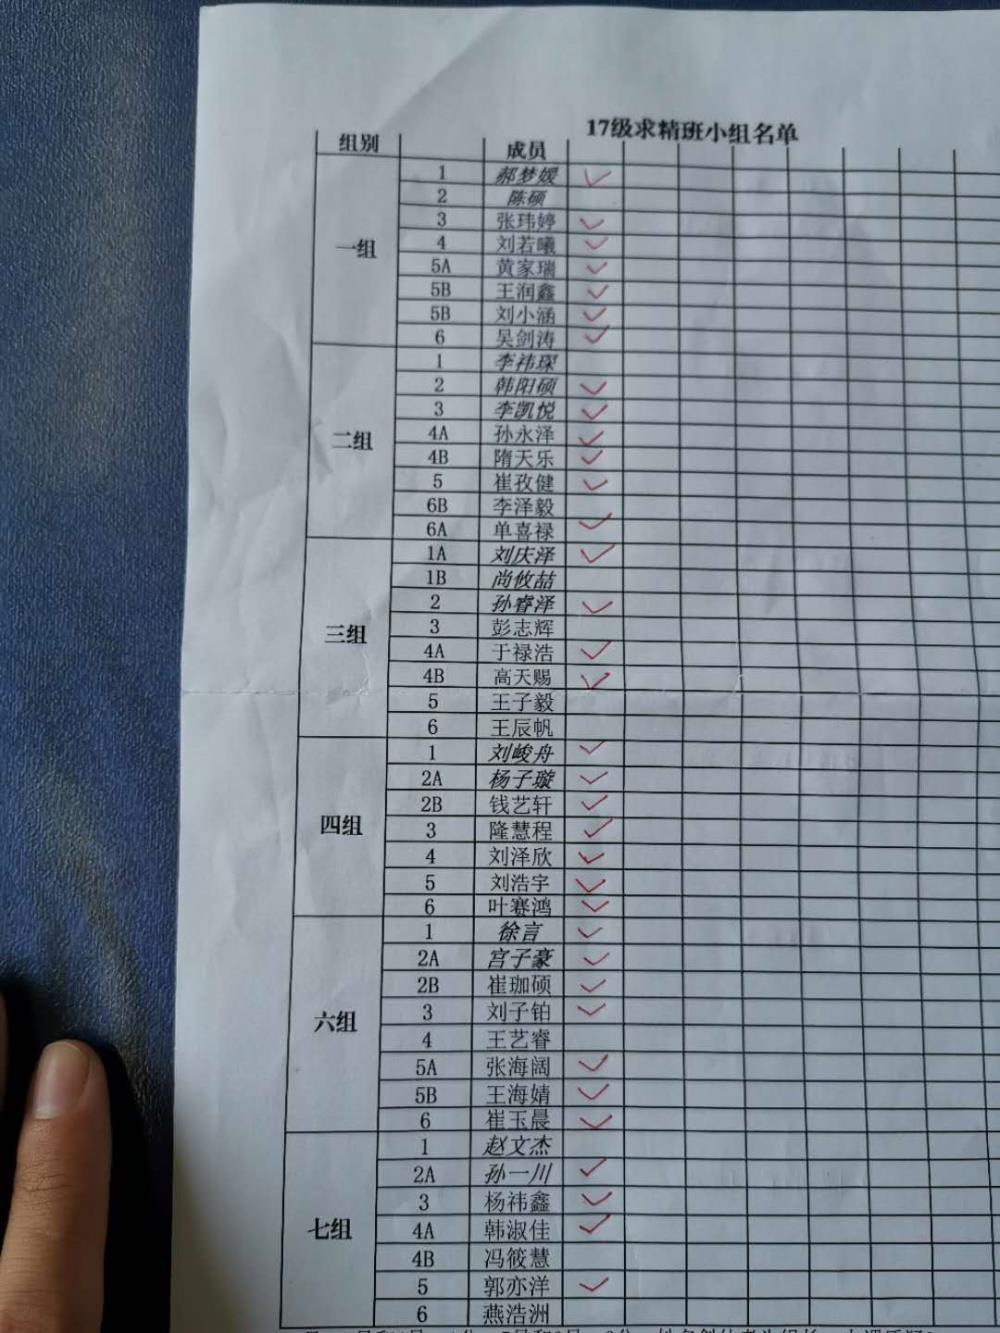 17级求精班小组名单
组别 成员
一组
1 郝梦媛 ✓
2 陈硕
3 张玮婷 ✓
4 刘若曦 ✓
5A 黄家瑞 ✓
5B 王润鑫 ✓
5B 刘小涵 ✓
6 吴剑涛 ✓
二组
1 李祎琛
2 韩阳硕 ✓
3 李凯悦 ✓
4A 孙永泽 ✓
4B 隋天乐 ✓
5 崔孜健 ✓
6B 李泽毅
6A 单喜禄 ✓
三组
1A 刘庆泽 ✓
1B 尚攸喆
2 孙睿泽 ✓
3 彭志辉
4A 于禄浩 ✓
4B 高天赐 ✓
5 王子毅
6 王辰帆
四组
1 刘峻舟 ✓
2A 杨子璇 ✓
2B 钱艺轩 ✓
3 隆慧程 ✓
4 刘泽欣 ✓
5 刘浩宇 ✓
6 叶赛鸿 ✓
六组
1 徐言 ✓
2A 宫子豪 ✓
2B 崔珈硕 ✓
3 刘子铂 ✓
4 王艺睿
5A 张海阔 ✓
5B 王海婧 ✓
6 崔玉晨 ✓
七组
1 赵文杰
2A 孙一川 ✓
3 杨祎鑫 ✓
4A 韩淑佳 ✓
4B 冯筱慧
5 郭亦洋 ✓
6 燕浩洲